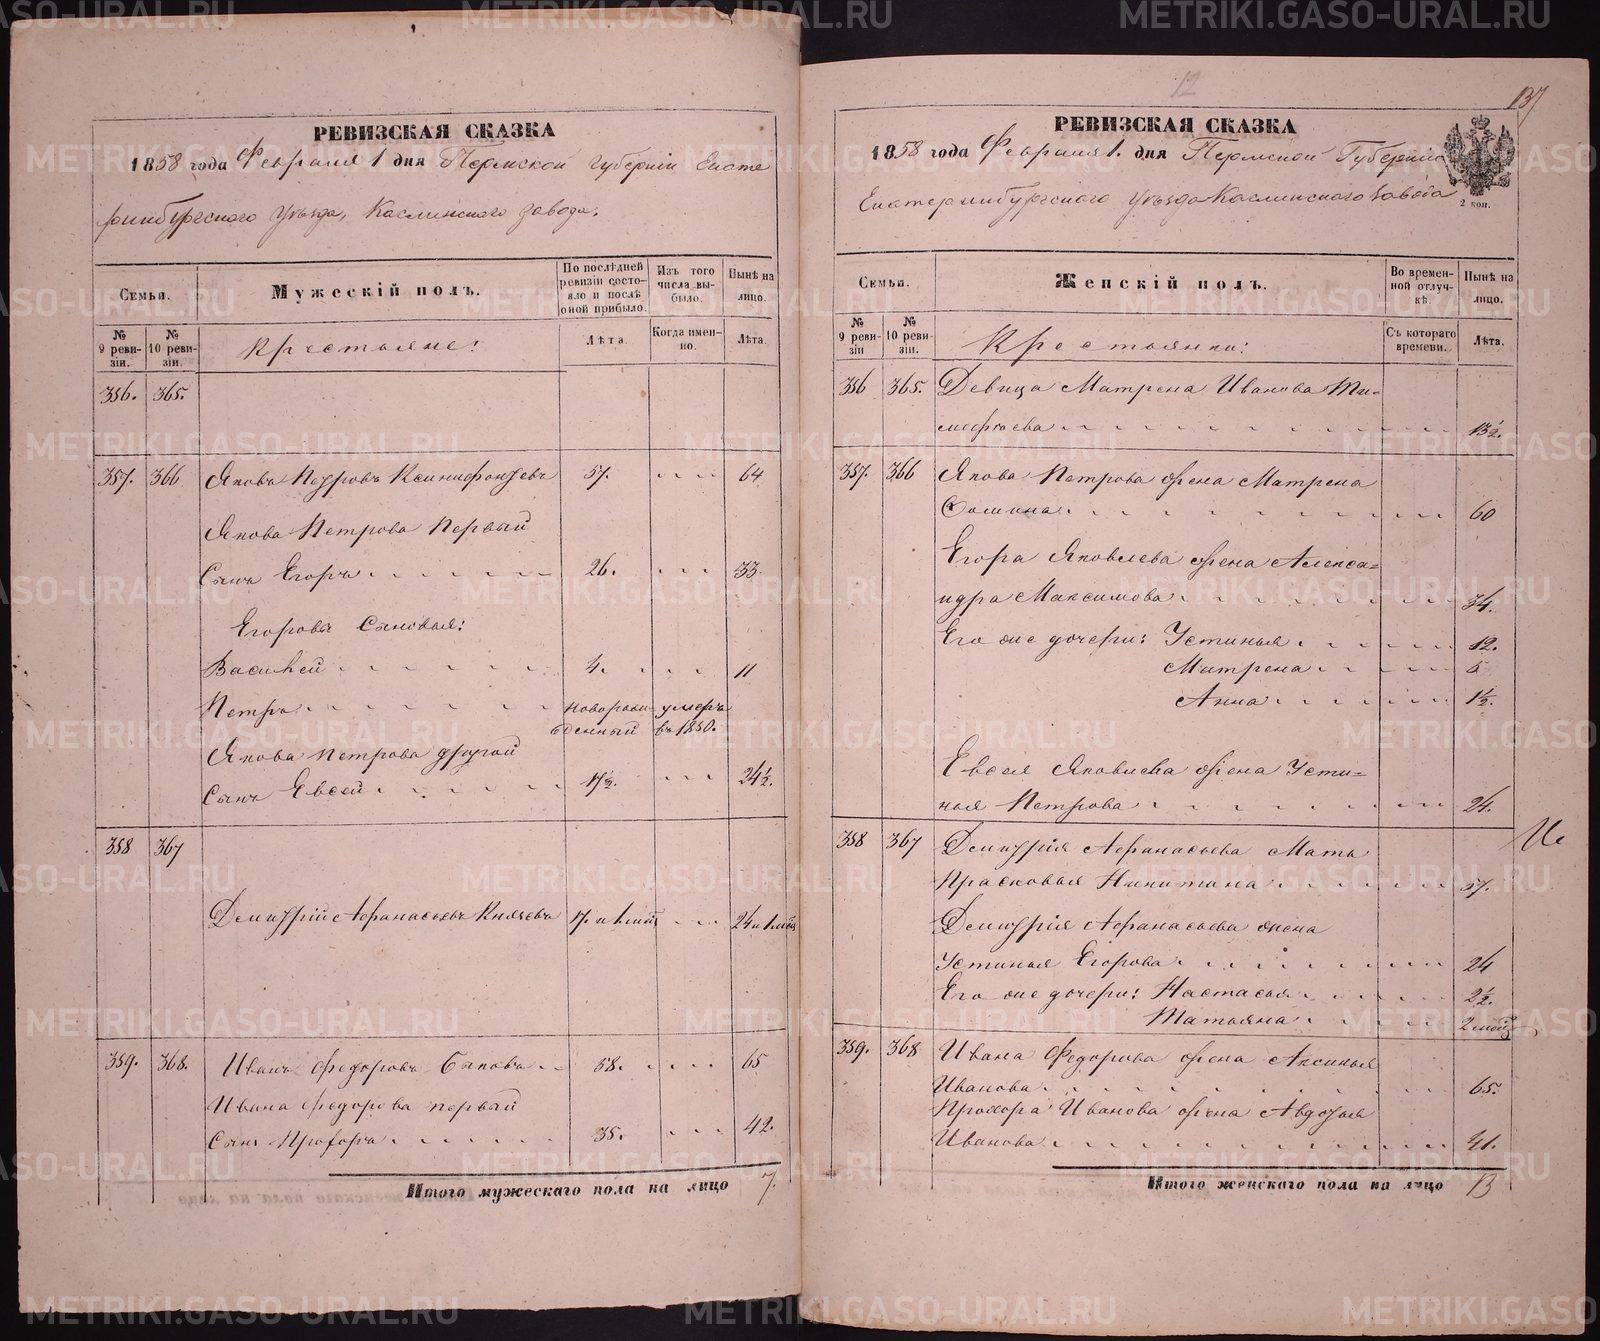 РЕВИЗСКАЯ СКАЗКА
1858 года Февраля 1 дня Пермской губерніи Екате
ринбургскаго Уѣзда, Каслинскаго завода.
Семьи.
Мужескій полъ.
По послѣдней ревизіи состояло и послѣ оной прибыло.
Изъ того числа выбыло.
Нынѣ на лицо.
№ 9 ревизіи.
№ 10 ревизіи.
Крестьяне:
Лѣта.
Когда именно.
Лѣта.
356. 365.
357. 366 Яковъ Петровъ Ксинифонтовъ 57. 64
Якова Петрова Первый
Сынъ Егоръ 26. 33.
Егоровы Сыновья:
Василей 4. 11
Петръ новорожденный умеръ въ 1850.
Якова Петрова другой
Сынъ Евсей 17½. 24½.
358 367
Дмитрій Афанасьевъ Князевъ 17. и 1 мѣс 24 и 1 мѣс
359. 368. Иванъ Федоровъ Быковъ 58. 65
Ивана Федорова первый
Сынъ Прохоръ 35. 42.
Итого мужескаго пола на лицо 7.
12
137
РЕВИЗСКАЯ СКАЗКА
1858 года Февраля 1. дня Пермской Губерніи
Екатеринбургскаго Уѣзда Каслинскаго Завода
2 коп.
Семьи.
Женскій полъ.
Во временной отлучкѣ.
Нынѣ на лицо.
№ 9 ревизіи
№ 10 ревизіи.
Крестьянки:
Съ котораго времени.
Лѣта.
356 365. Девица Матрена Иванова Ти-
мофеева 13½.
357. 366 Якова Петрова жена Матрена
Фомина 60
Егора Яковлева жена Алекса-
ндра Максимова 34.
Его же дочери: Устинья 12.
Матрена 5
Анна 1½.
Евсея Яковлева жена Усти-
нья Петрова 24.
358 367 Дмитрія Афанасьева Мать
Прасковья Никитина 57.
Дмитрія Афанасьева жена
Устинья Егорова 24
Его же дочери: Настасья 2½.
Татьяна 2 мѣс
359. 368 Ивана Федорова жена Аксинья
Иванова 65.
Прохора Иванова жена Авдотья
Иванова 41.
Итого женскаго пола на лицо 13
METRIKI.GASO-URAL.RU